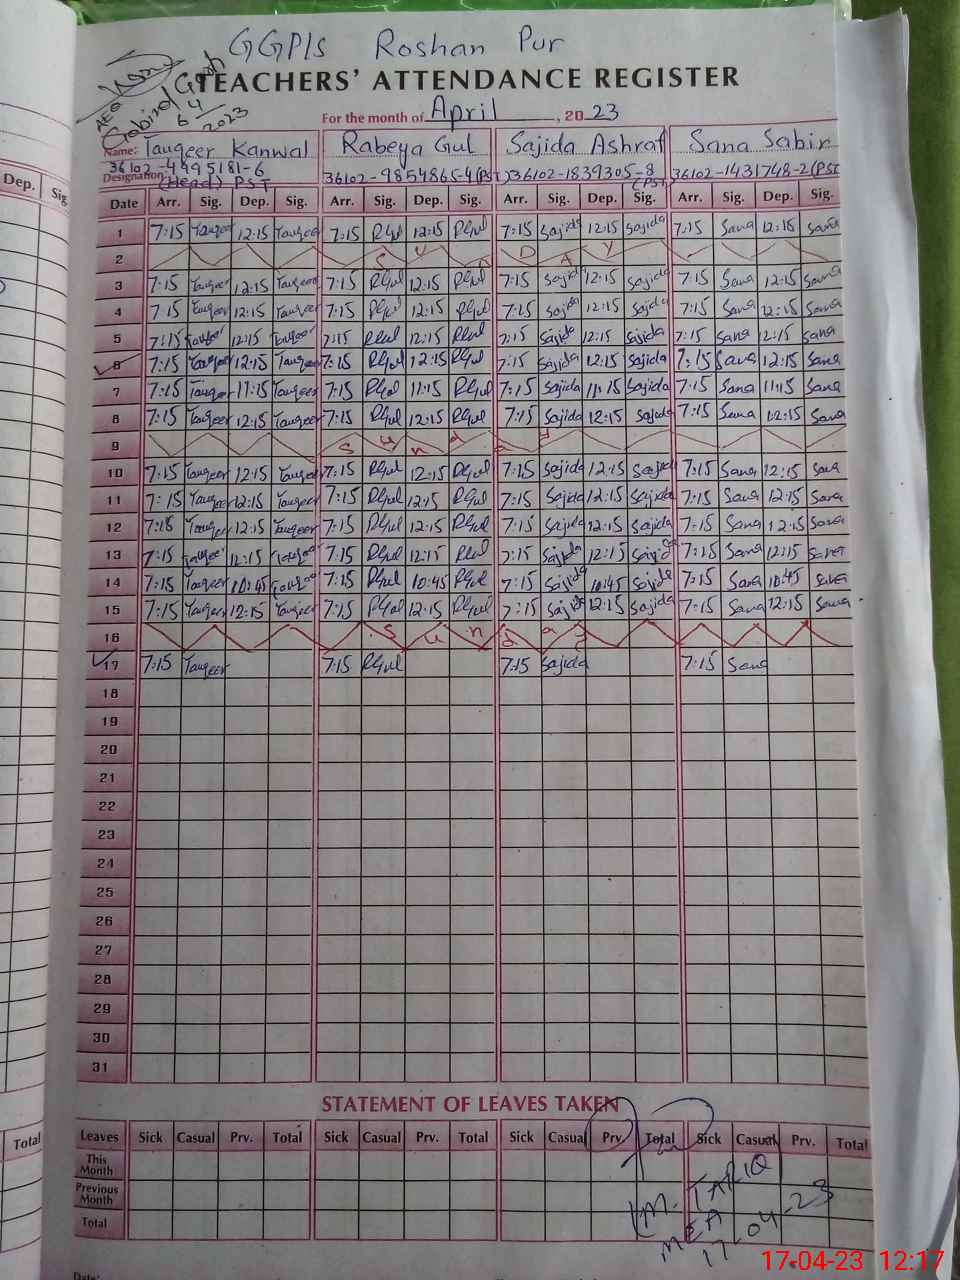 GGPIS Roshan Pur
TEACHERS' ATTENDANCE REGISTER
AEO
6/4/2023
For the month of April, 2023
Name: Tauqeer Kanwal Rabeya Gul Sajida Ashraf Sana Sabir
36102-4495181-6
Designation: (Head) PST 36102-9854865-4(PST) 36102-1839305-8 (PST) 36102-1431748-2(PST
Dep. Sig
Date Arr. Sig. Dep. Sig. Arr. Sig. Dep. Sig. Arr. Sig. Dep. Sig. Arr. Sig. Dep. Sig.
1 7:15 Tauqeer 12:15 Tauqeer 7:15 RGul 12:15 RGul 7:15 Sajida 12:15 Sajida 7:15 Sana 12:15 Sana
2 S U N D A Y
3 7:15 Tauqeer 12:15 Tauqeer 7:15 RGul 12:15 RGul 7:15 Sajida 12:15 Sajida 7:15 Sana 12:15 Sana
4 7:15 Tauqeer 12:15 Tauqeer 7:15 RGul 12:15 RGul 7:15 Sajida 12:15 Sajida 7:15 Sana 12:15 Sana
5 7:15 Tauqeer 12:15 Tauqeer 7:15 RGul 12:15 RGul 7:15 Sajida 12:15 Sajida 7:15 Sana 12:15 Sana
6 7:15 Tauqeer 12:15 Tauqeer 7:15 RGul 12:15 RGul 7:15 Sajida 12:15 Sajida 7:15 Sana 12:15 Sana
7 7:15 Tauqeer 11:15 Tauqeer 7:15 RGul 11:15 RGul 7:15 Sajida 11:15 Sajida 7:15 Sana 11:15 Sana
8 7:15 Tauqeer 12:15 Tauqeer 7:15 RGul 12:15 RGul 7:15 Sajida 12:15 Sajida 7:15 Sana 12:15 Sana
9 S u n d a y
10 7:15 Tauqeer 12:15 Tauqeer 7:15 RGul 12:15 RGul 7:15 Sajida 12:15 Sajida 7:15 Sana 12:15 Sana
11 7:15 Tauqeer 12:15 Tauqeer 7:15 RGul 12:15 RGul 7:15 Sajida 12:15 Sajida 7:15 Sana 12:15 Sana
12 7:18 Tauqeer 12:15 Tauqeer 7:15 RGul 12:15 RGul 7:15 Sajida 12:15 Sajida 7:15 Sana 12:15 Sana
13 7:15 Tauqeer 12:15 Tauqeer 7:15 RGul 12:15 RGul 7:15 Sajida 12:15 Sajida 7:15 Sana 12:15 Sana
14 7:15 Tauqeer 10:45 Tauqeer 7:15 RGul 10:45 RGul 7:15 Sajida 10:45 Sajida 7:15 Sana 10:45 Sana
15 7:15 Tauqeer 12:15 Tauqeer 7:15 RGul 12:15 RGul 7:15 Sajida 12:15 Sajida 7:15 Sana 12:15 Sana
16 S u n d a y
17 7:15 Tauqeer 7:15 RGul 7:15 Sajida 7:15 Sana
18
19
20
21
22
23
24
25
26
27
28
29
30
31
STATEMENT OF LEAVES TAKEN
Total
Leaves Sick Casual Prv. Total Sick Casual Prv. Total Sick Casual Prv. Total Sick Casual Prv. Total
This Month
Previous Month
Total
M. TARIQ
MEA
17-04-23
Date:
17-04-23 12:17